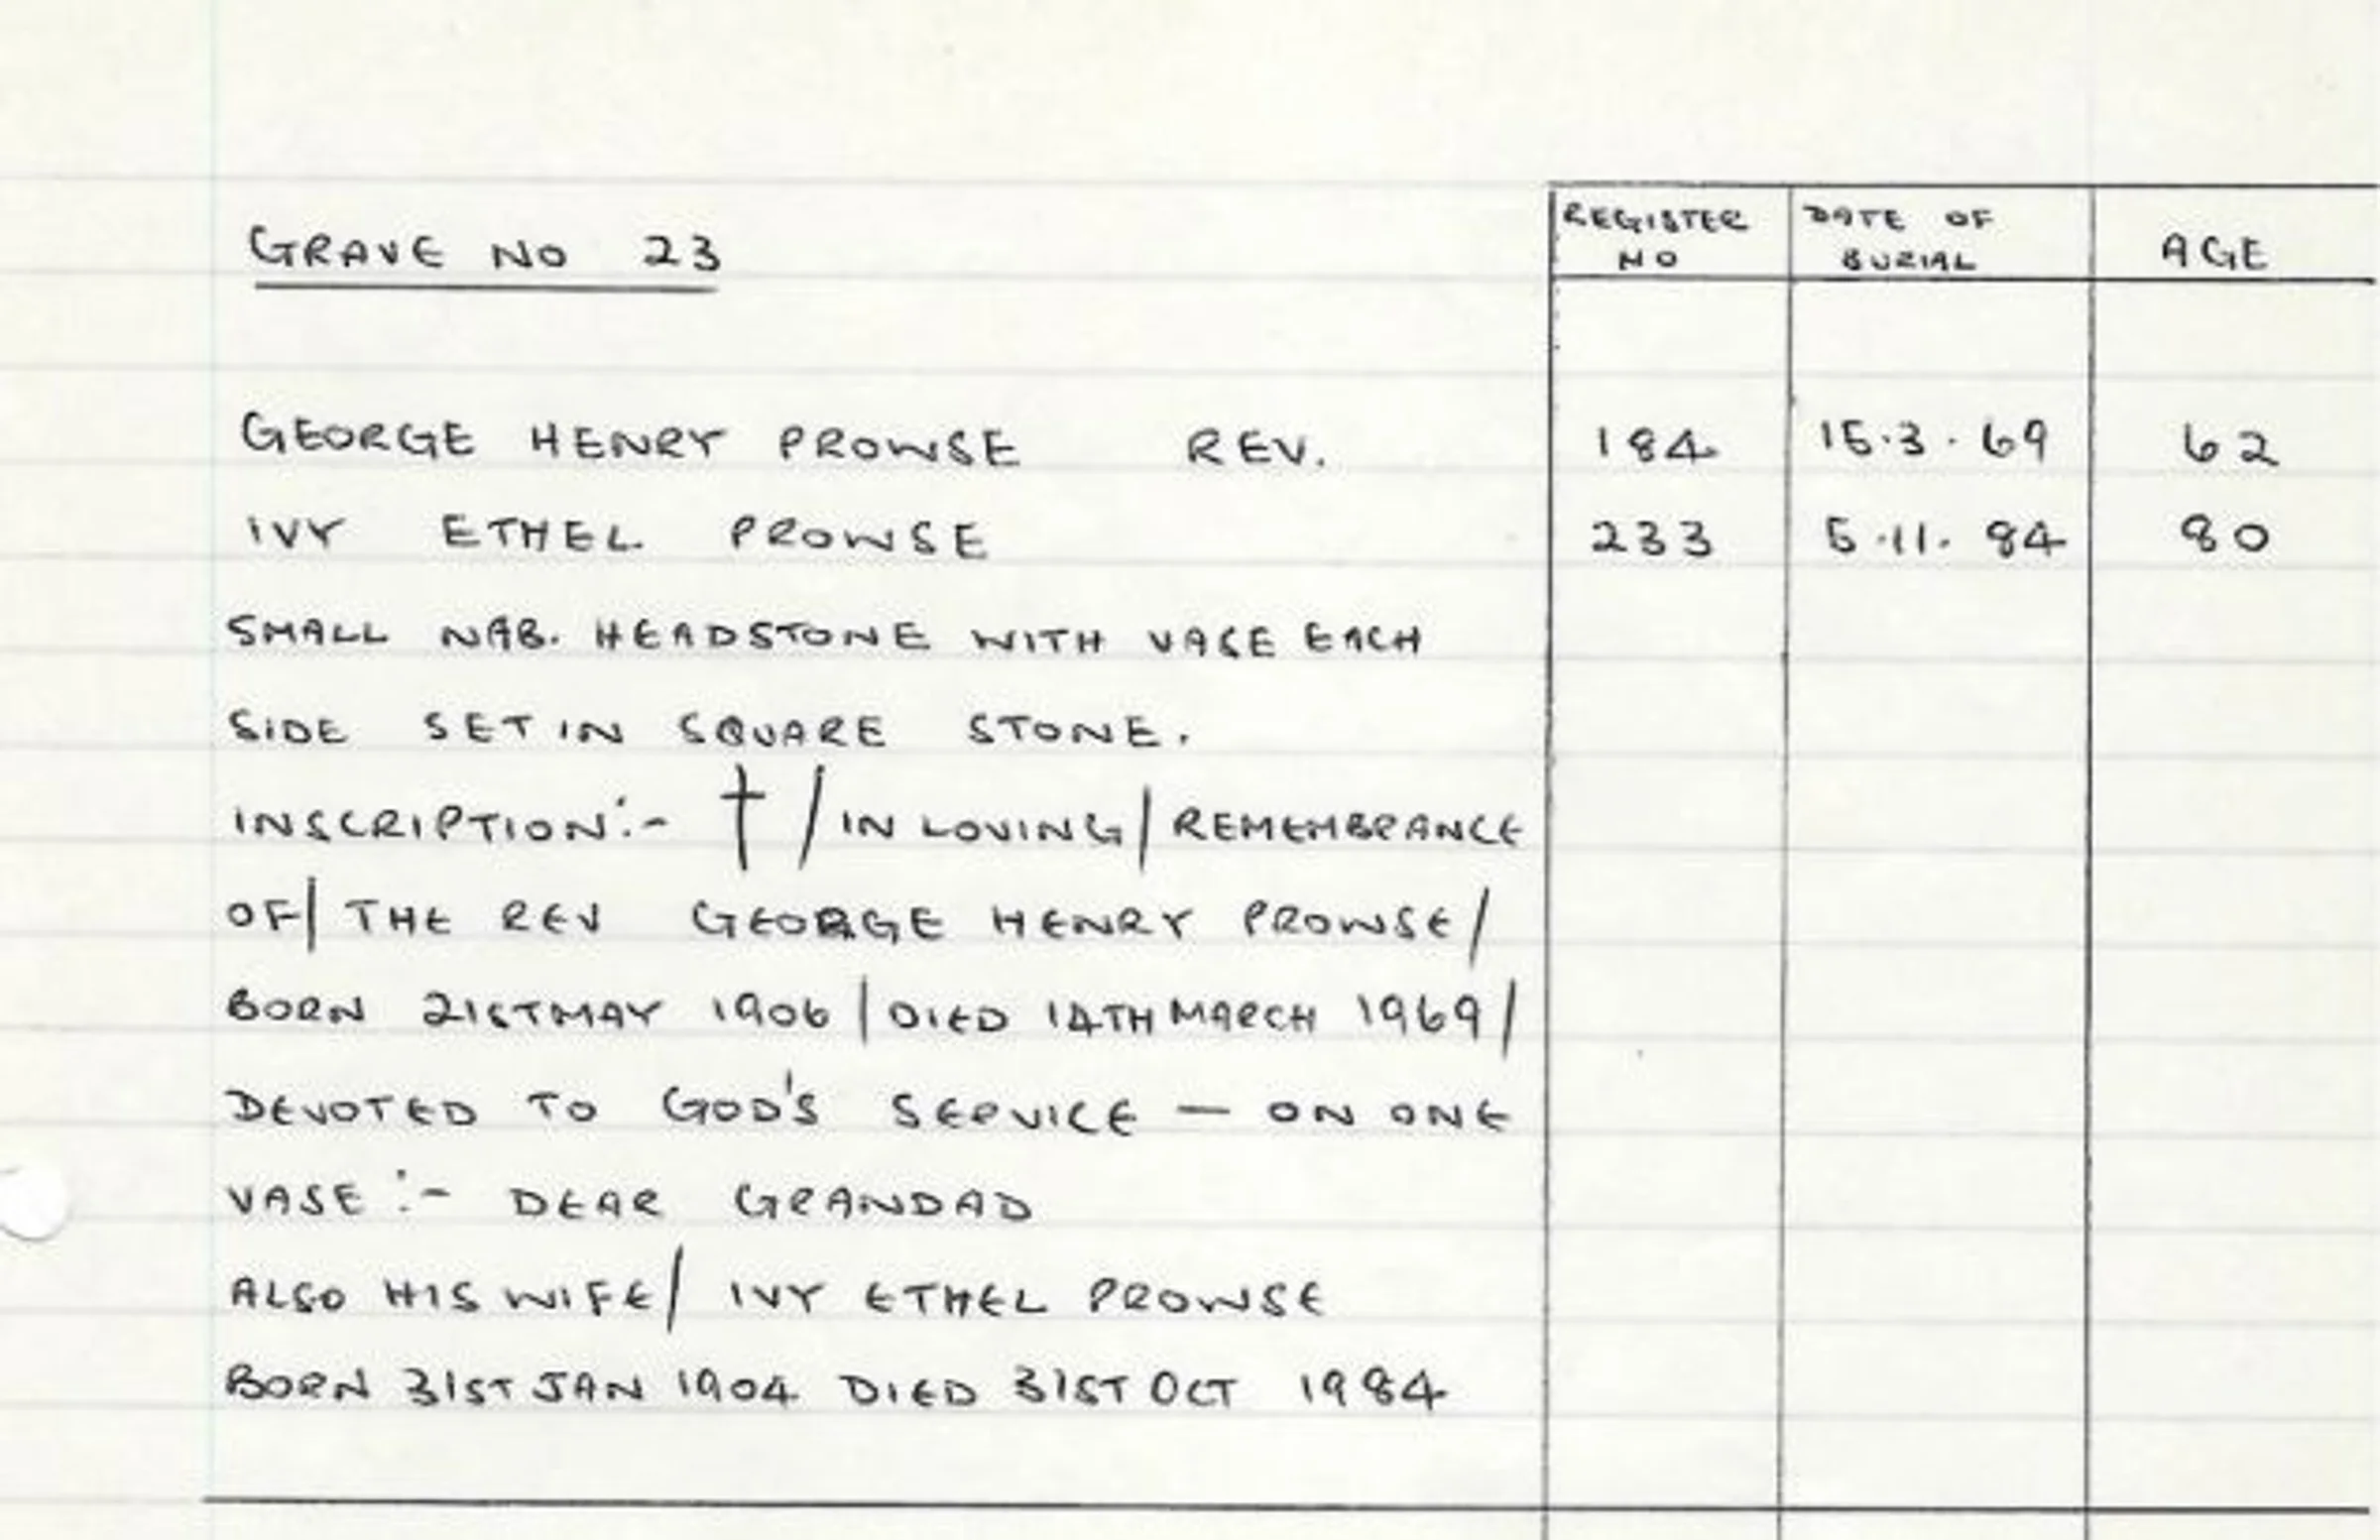 GRAVE NO 23
REGISTER NO
DATE OF BURIAL
AGE
GEORGE HENRY PROWSE REV. 184 15.3.69 62
IVY ETHEL PROWSE 233 5.11.84 80
SMALL NAB. HEADSTONE WITH VASE EACH
SIDE SET IN SQUARE STONE.
INSCRIPTION:- † / IN LOVING / REMEMBRANCE
OF / THE REV GEORGE HENRY PROWSE /
BORN 21ST MAY 1906 / DIED 14TH MARCH 1969 /
DEVOTED TO GOD'S SERVICE — ON ONE
VASE :- DEAR GRANDAD
ALSO HIS WIFE / IVY ETHEL PROWSE
BORN 31ST JAN 1904 DIED 31ST OCT 1984